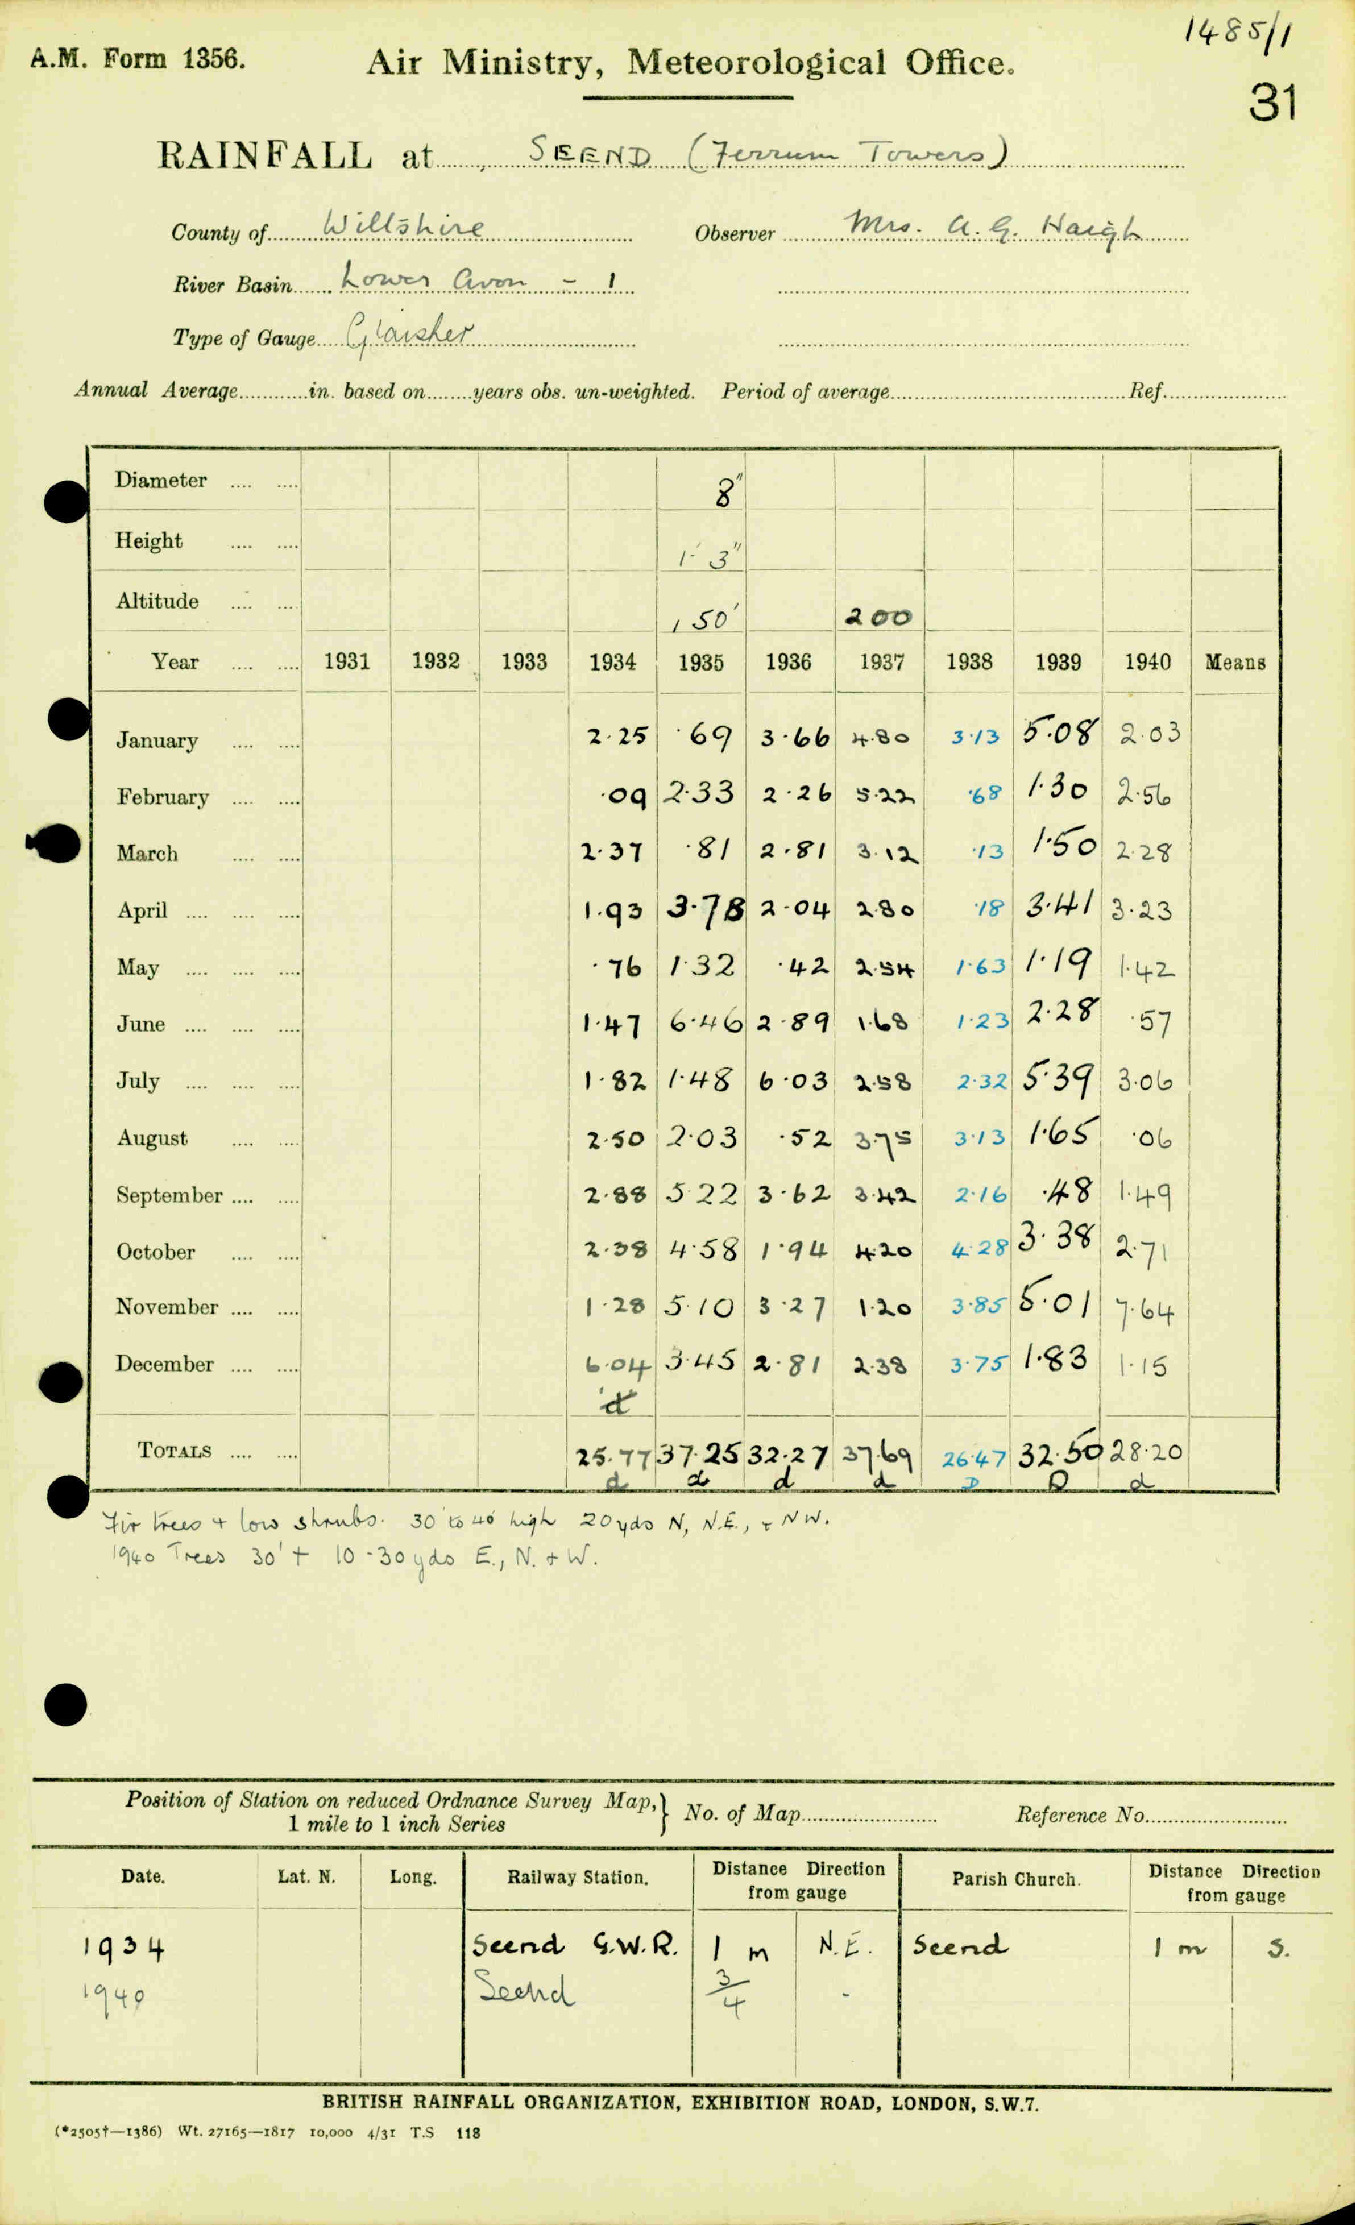 1485/1
A.M. Form 1356. Air Ministry, Meteorological Office.
31
RAINFALL at SEEND (Ferrum Towers)
County of Wiltshire Observer Mrs. A. G. Haigh
River Basin Lower Avon - 1
Type of Gauge Glaisher
Annual Average in. based on years obs. un-weighted. Period of average Ref.
Diameter 8"
Height 1' 3"
Altitude 150' 200
Year 1931 1932 1933 1934 1935 1936 1937 1938 1939 1940 Means
January 2.25 .69 3.66 4.80 3.13 5.08 2.03
February .09 2.33 2.26 5.22 .68 1.30 2.56
March 2.37 .81 2.81 3.12 .13 1.50 2.28
April 1.93 3.78 2.04 2.80 .18 3.41 3.23
May .76 1.32 .42 2.54 1.63 1.19 1.42
June 1.47 6.46 2.89 1.68 1.23 2.28 .57
July 1.82 1.48 6.03 2.58 2.32 5.39 3.06
August 2.50 2.03 .52 3.75 3.13 1.65 .06
September 2.88 5.22 3.62 3.42 2.16 .48 1.49
October 2.38 4.58 1.94 4.20 4.28 3.38 2.71
November 1.28 5.10 3.27 1.20 3.85 5.01 7.64
December 6.04 3.45 2.81 2.38 3.75 1.83 1.15
d
TOTALS 25.77 37.25 32.27 37.69 26.47 32.50 28.20
d d d d D D d
Fir trees + low shrubs. 30' to 40' high 20yds N, N.E., + NW.
1940 Trees 30' + 10-30yds E., N. + W.
Position of Station on reduced Ordnance Survey Map, } No. of Map Reference No.
1 mile to 1 inch Series
Date. Lat. N. Long. Railway Station. Distance Direction from gauge Parish Church. Distance Direction from gauge
1934 Seend G.W.R. 1 m N.E. Seend 1 m S.
1940 Seend 3/4 -
BRITISH RAINFALL ORGANIZATION, EXHIBITION ROAD, LONDON, S.W.7.
(*2505†—1386) Wt. 27165—1817 10,000 4/31 T.S 118